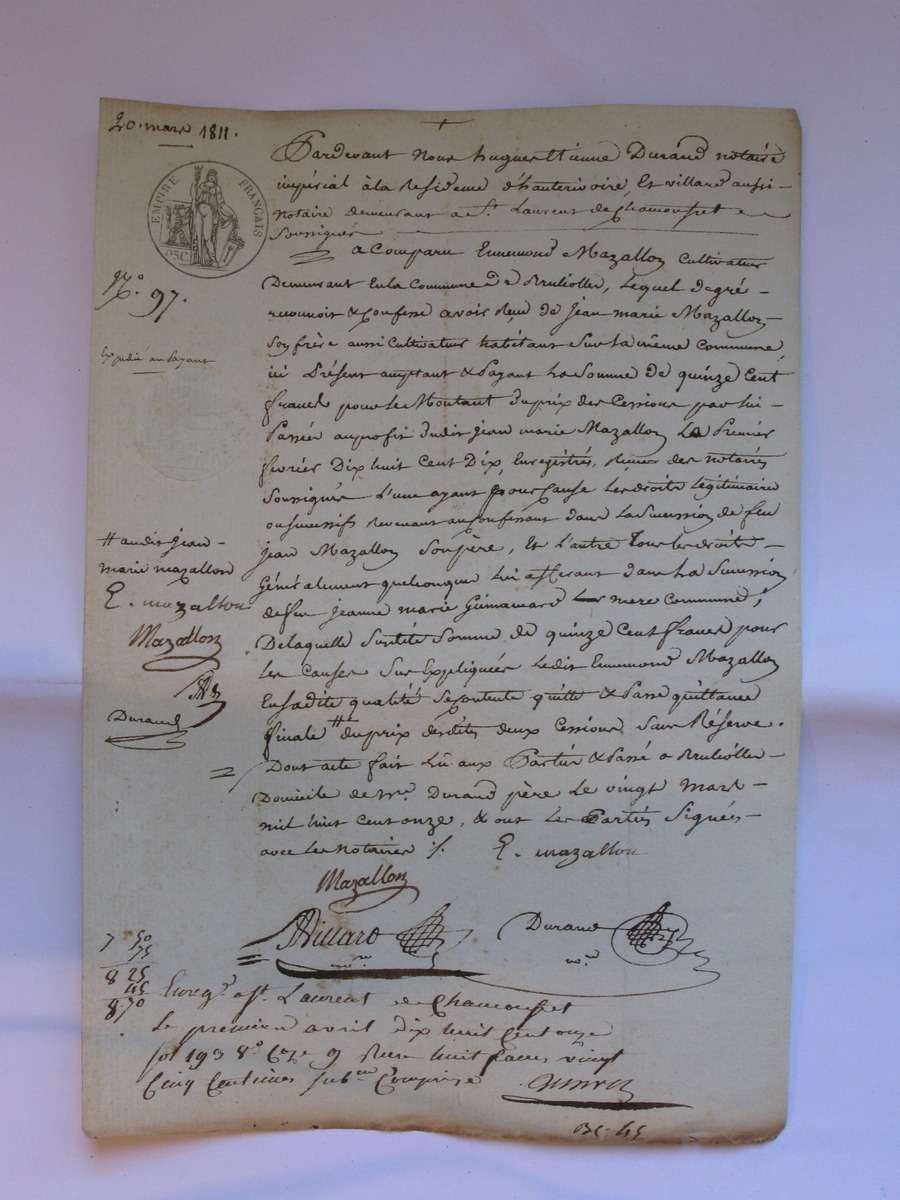 20. mars 1811.
EMPIRE FRANÇAIS
75 C.
N.º 97.
Expédié au Payant
Pardevant nous hugues Etienne Durand notaire
impérial à la Residence d'hauterivoire, Et villard aussi
notaire demeurant a St. Laurent de Chamousset
Soussignés
a Comparu Ennemond Mazallon Cultivateur
Demeurant En la Commune de Brulliolles, lequel de gré
reconnoit & Confesse avoir Reçu de Jean marie Mazallon
Son frère aussi Cultivateur habitant Sur la même Commune
ici Présent acceptant & Payant La Somme de quinze Cent
francs pour le Montant du prix des Cessions par lui
Passées au profit dudit jean marie Mazallon Le Premier
fevrier Dix huit Cent Dix, Enregistrés, des notaires
Soussignés L'une ayant pour Cause Les droits Légitimaires
ou Successifs Revenant au Confessant dans La Succession de feu
jean Mazallon Son père, Et L'autre Tous les droits
Généralement quelconques lui afferant dans La Succession
de feu jeanne marie mere Commune;
De laquelle Susdite Somme de quinze Cent francs pour
Les Causes Sus Expliquées Ledit Ennemond Mazallon
En Sadite qualité Se Contente quitte & Passe quittance
finale # du prix desdites deux Cessions Sans Réserve.
Dont acte fait Lu aux Parties & Passé a Brulliolles
Domicile de Mr. Durand père Le vingt Mars
mil huit cent onze, & ont Les Parties Signées
avec Les Notaires ./. E. mazallon
Mazallon
# audit jean
marie mazallon
E. mazallon
Mazallon
Durand
Villard
Durand
nre.
7 50
75
8 25
45
8.70
Enregé. a St. Laurent de Chamousset
Le premier avril dix huit Cent onze
fol 193 Ro. Cze 9 Reçu huit francs vingt
Cinq Centimes subon Comprise